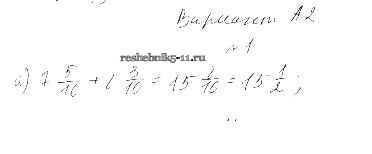 Вариант А2
№1
reshebnik5-11.ru
а) 7 5/16 + 3/16 = 15 /16 = 15 1/2 ;